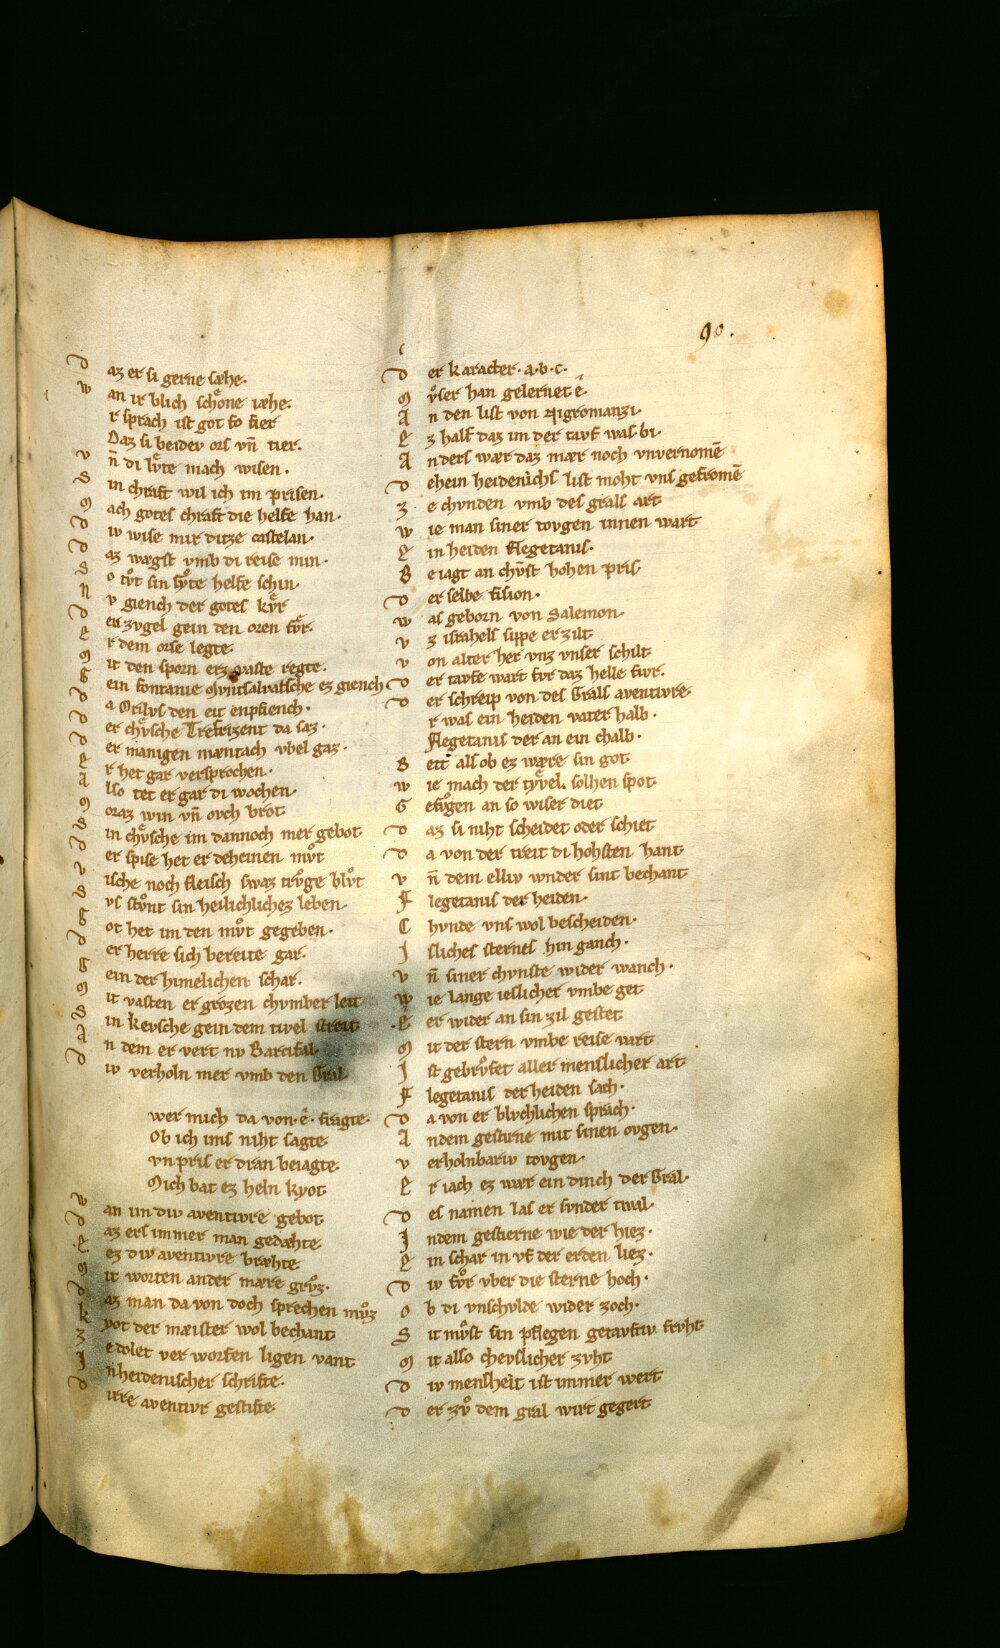 90.
d az er si gerne sæhe.
w an ir blich schone iæhe.
r sprach ist got so fier
Daz si beidev ors vn̄ tier.
v n̄ di lvte mach wisen.
s in chraft wil ich im prisen.
m ach gotes chraft die helfe han.
d iv wise mir ditze castelan.
d az wægst vmb di reise min.
s o tvͦt sin gvͦte helfe schin.
n v giench der gotes kvͤr
d en zvgel gein den oren fvͤr.
e r dem orse legte.
m it den sporn erz vaste regte.
g ein fontanie Mvntsalvatsche ez giench
d a Orilvs den eit enpfiench.
d er chvͤsche Trefrizent da saz.
d er manigen mæntach vbel gaz.
e r het gar versprochen.
a lso tet er gar di wochen.
m oraz win vn̄ ovch brot
s in chvͤsche im dannoch mer gebot
d er spise het er deheinen mvͦt
v ische noch fleisch swaz trvͦge blvͦt
s vs stvͦnt sin heilichlichez leben.
g ot het im den mvͦt gegeben.
d er herre sich bereite gar.
g ein der himelichen schar.
m it vasten er grozen chvmber leit
s in kevsche gein dem tivel streit
a n dem er vert nv Parcifal
d iv verholn mer vmb den Gral.
wer mich da von .e. fragte.
Ob ich ims niht sagte
vn pris er dran beiagte
Mich bat ez heln kyot
w an im div aventivre gebot
d az ers immer man gedæhte
e ez div aventivre bræhte
m it worten ander mære grvͦz.
d az man da von doch sprechen mvͦz
k yot der mæister wol bechant
z e dolet ver worfen ligen vant
i n heidenischer schrifte.
d irre aventivr gestifte
d er karacter .a.b.c.
m vͦser han gelernet e
A n den list von nigromanzi.
E z half daz im der tavf was bi.
A nders wær daz mær noch vnvernomē
d ehein heidenischs list moht vns gefromē
z e chvnden vmb des grals art
w ie man siner tovgen innen wart
E in heiden Flegetanis.
B eiagt an chvnst hohen pris
d er selbe fision.
w as geborn von Salemon.
v z israhels sippe er zilt
v on alter her vnz vnser schilt
d er tavfe wart fvr daz helle fivr.
d er schreip von des Grals aventivre.
r was ein heiden vater halb.
Flegetanis der an ein chalb.
B ett als ob ez wære sin got
w ie mach der tyͤvel solhen spot
G efvͦgen an so wiser diet
d az si niht scheidet oder schiet
d a von der treit di hohsten hant
v n̄ dem elliv wnder sint bechant
F legetanis der heiden.
C hvnde vns wol bescheiden.
I sliches sternes hin ganch.
v n̄ siner chvnfte wider wanch.
w ie lange ieslicher vmbe get
e er wider an sin zil gestet
m it der stern vmbe reise vart
I st gebrvͤfet aller menslicher art.
F legetanis der heiden sach.
d a von er blvchlichen sprach.
A n dem gestirne mit sinen ovgen.
v erholnbariv tovgen.
E r iach ez wær ein dinch der Gral
d es namen las er svnder twal
I n dem gestierne wie der hiez.
E in schar in vf der erden liez.
d iv fvͦr vber die sterne hoch.
o b di vnschvlde wider zoch.
S it mvͦst sin pflegen getavftiv frvht
m it also chevslicher zvht
d iv mensheit ist immer wert
d er zvͦ dem gral wirt gegert